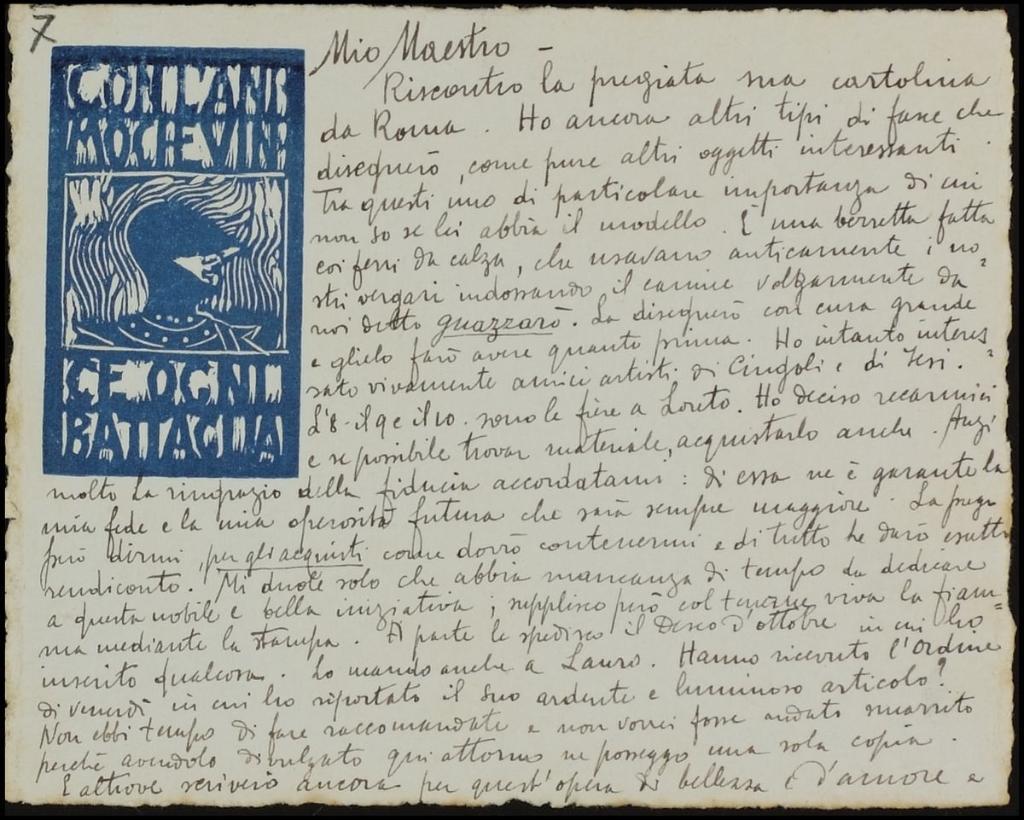 7
CON L'ANI
MO CHE VIN
CE OGNI
BATTAGLIA
Mio Maestro –
Riscontro la pregiata sua cartolina
da Roma. Ho ancora altri tipi di fuse che
disegnerò, come pure altri oggetti interessanti.
Tra questi uno di particolare importanza di cui
non so se lei abbia il modello. È una berretta fatta
coi ferri da calza, che usavano anticamente i no=
stri vergari indossando il camice volgarmente da
noi detto guazzarò. La disegnerò con cura grande
e glielo farò avere quanto prima. Ho intanto interes=
sato vivamente amici artisti di Cingoli e di Jesi.
L'8 - il 9 e il 10 sono le fiere a Loreto. Ho deciso recarmici
e se possibile trovar materiale, acquistarlo anche. Anzi
molto La ringrazio della fiducia accordatami: di essa ne è garante la
mia fede e la mia operosità futura che sarà sempre maggiore. La prego
però dirmi, per gli acquisti come dovrò contenermi e di tutto he darò esatto
rendiconto. Mi duole solo che abbia mancanza di tempo da dedicare
a questa nobile e bella iniziativa; supplisco però col tenerne viva la fiam=
ma mediante la stampa. A parte le spedisco il Desco d'ottobre in cui ho
inserito qualcosa. Lo mando anche a Lauro. Hanno ricevuto l'Ordine
di venerdì in cui ho riportato il suo ardente e luminoso articolo?
Non ebbi tempo di fare raccomandate e non vorrei fosse andato smarrito
perché avendolo divulgato qui attorno ne posseggo una sola copia.
E altrove scriverò ancora per quest'opera di bellezza e d'amore e